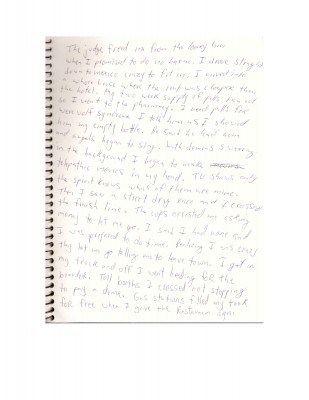 The judge freed me from the looney bin
when I promised to do no harm. I drove straight
down to mexico crazy to fit in. I moved into
a whore house where the rent was cheaper than
the hotel. My two week supply of pills ran out
so I went to the pharmacy. I need pills for
werewolf syndrome I told him as I showed
him my empty bottle. He said he had some
and angels began to sing with demons snoring
in the background I began to make
telepathic movies in my head. TV shows only
the spirit knows which of them are mine.
Then I saw a street drag race and I crossed
the finish line. The cops arrested me asking
money to let me go. I said I had none and
I was prepared to do time. Realizing I was crazy
they let me go telling me to leave town. I got in
my truck and off I went heading for the
boarder. Toll booths I crossed not stopping
to pay a dime. Gas stations filled my tank
for free when I gave the